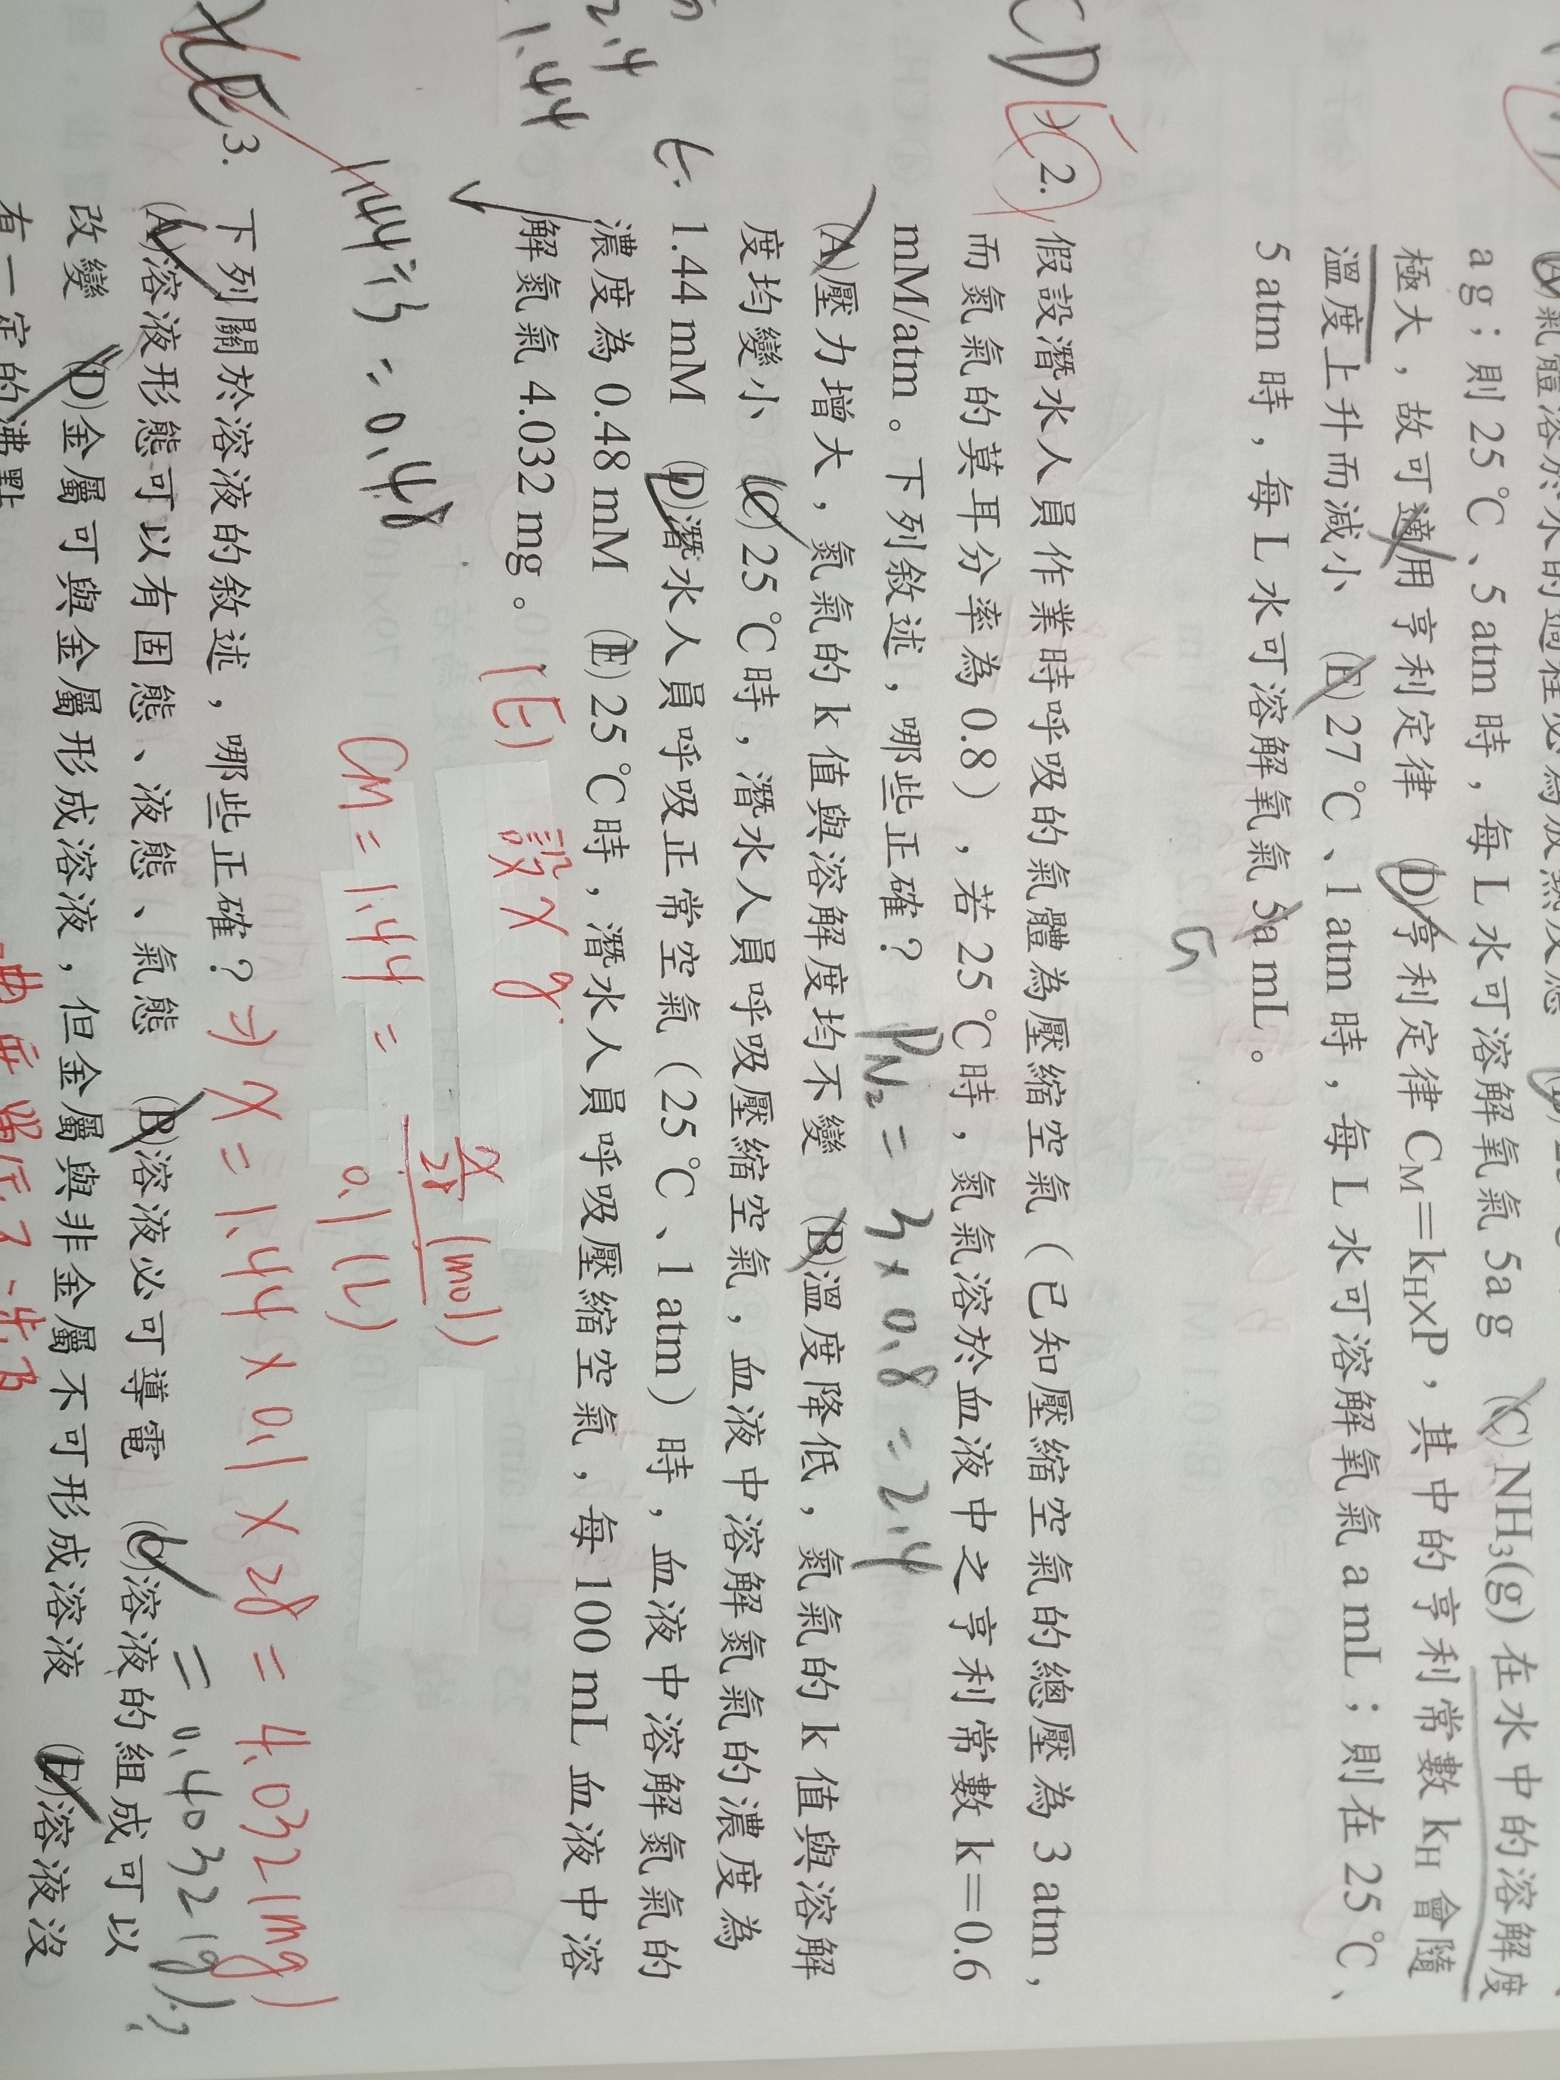 a g；則 25 ℃、5 atm 時，每 L 水可溶解氧氣 5a g (C) NH₃(g) 在水中的溶解度
極大，故可適用亨利定律 (D)亨利定律 C_M＝k_H×P，其中的亨利常數 k_H 會隨
溫度上升而減小 (E) 27 ℃、1 atm 時，每 L 水可溶解氧氣 a mL；則在 25 ℃、
5 atm 時，每 L 水可溶解氧氣 5a mL。
CD
2. 假設潛水人員作業時呼吸的氣體為壓縮空氣（已知壓縮空氣的總壓為 3 atm，
而氮氣的莫耳分率為 0.8），若 25 ℃時，氮氣溶於血液中之亨利常數 k＝0.6
mM/atm。下列敘述，哪些正確？ P_N₂ = 3 × 0.8 = 2.4
(A)壓力增大，氮氣的 k 值與溶解度均不變 (B)溫度降低，氮氣的 k 值與溶解
度均變小 (C) 25 ℃時，潛水人員呼吸壓縮空氣，血液中溶解氮氣的濃度為
1.44 mM (D)潛水人員呼吸正常空氣（25 ℃、1 atm）時，血液中溶解氮氣的
濃度為 0.48 mM (E) 25 ℃時，潛水人員呼吸壓縮空氣，每 100 mL 血液中溶
解氮氣 4.032 mg。
2.4
1.44
1.44 ÷ 3 = 0.48
(E) 設 x g.
C_M = 1.44 = x/28 (mol) / 0.1 (L)
⇒ x = 1.44 × 0.1 × 28 = 4.032 (mg)
= 0.4032 (g)
3. 下列關於溶液的敘述，哪些正確？
(A)溶液形態可以有固態、液態、氣態 (B)溶液必可導電 (C)溶液的組成可以
改變 (D)金屬可與金屬形成溶液，但金屬與非金屬不可形成溶液 (E)溶液沒
有一定的沸點